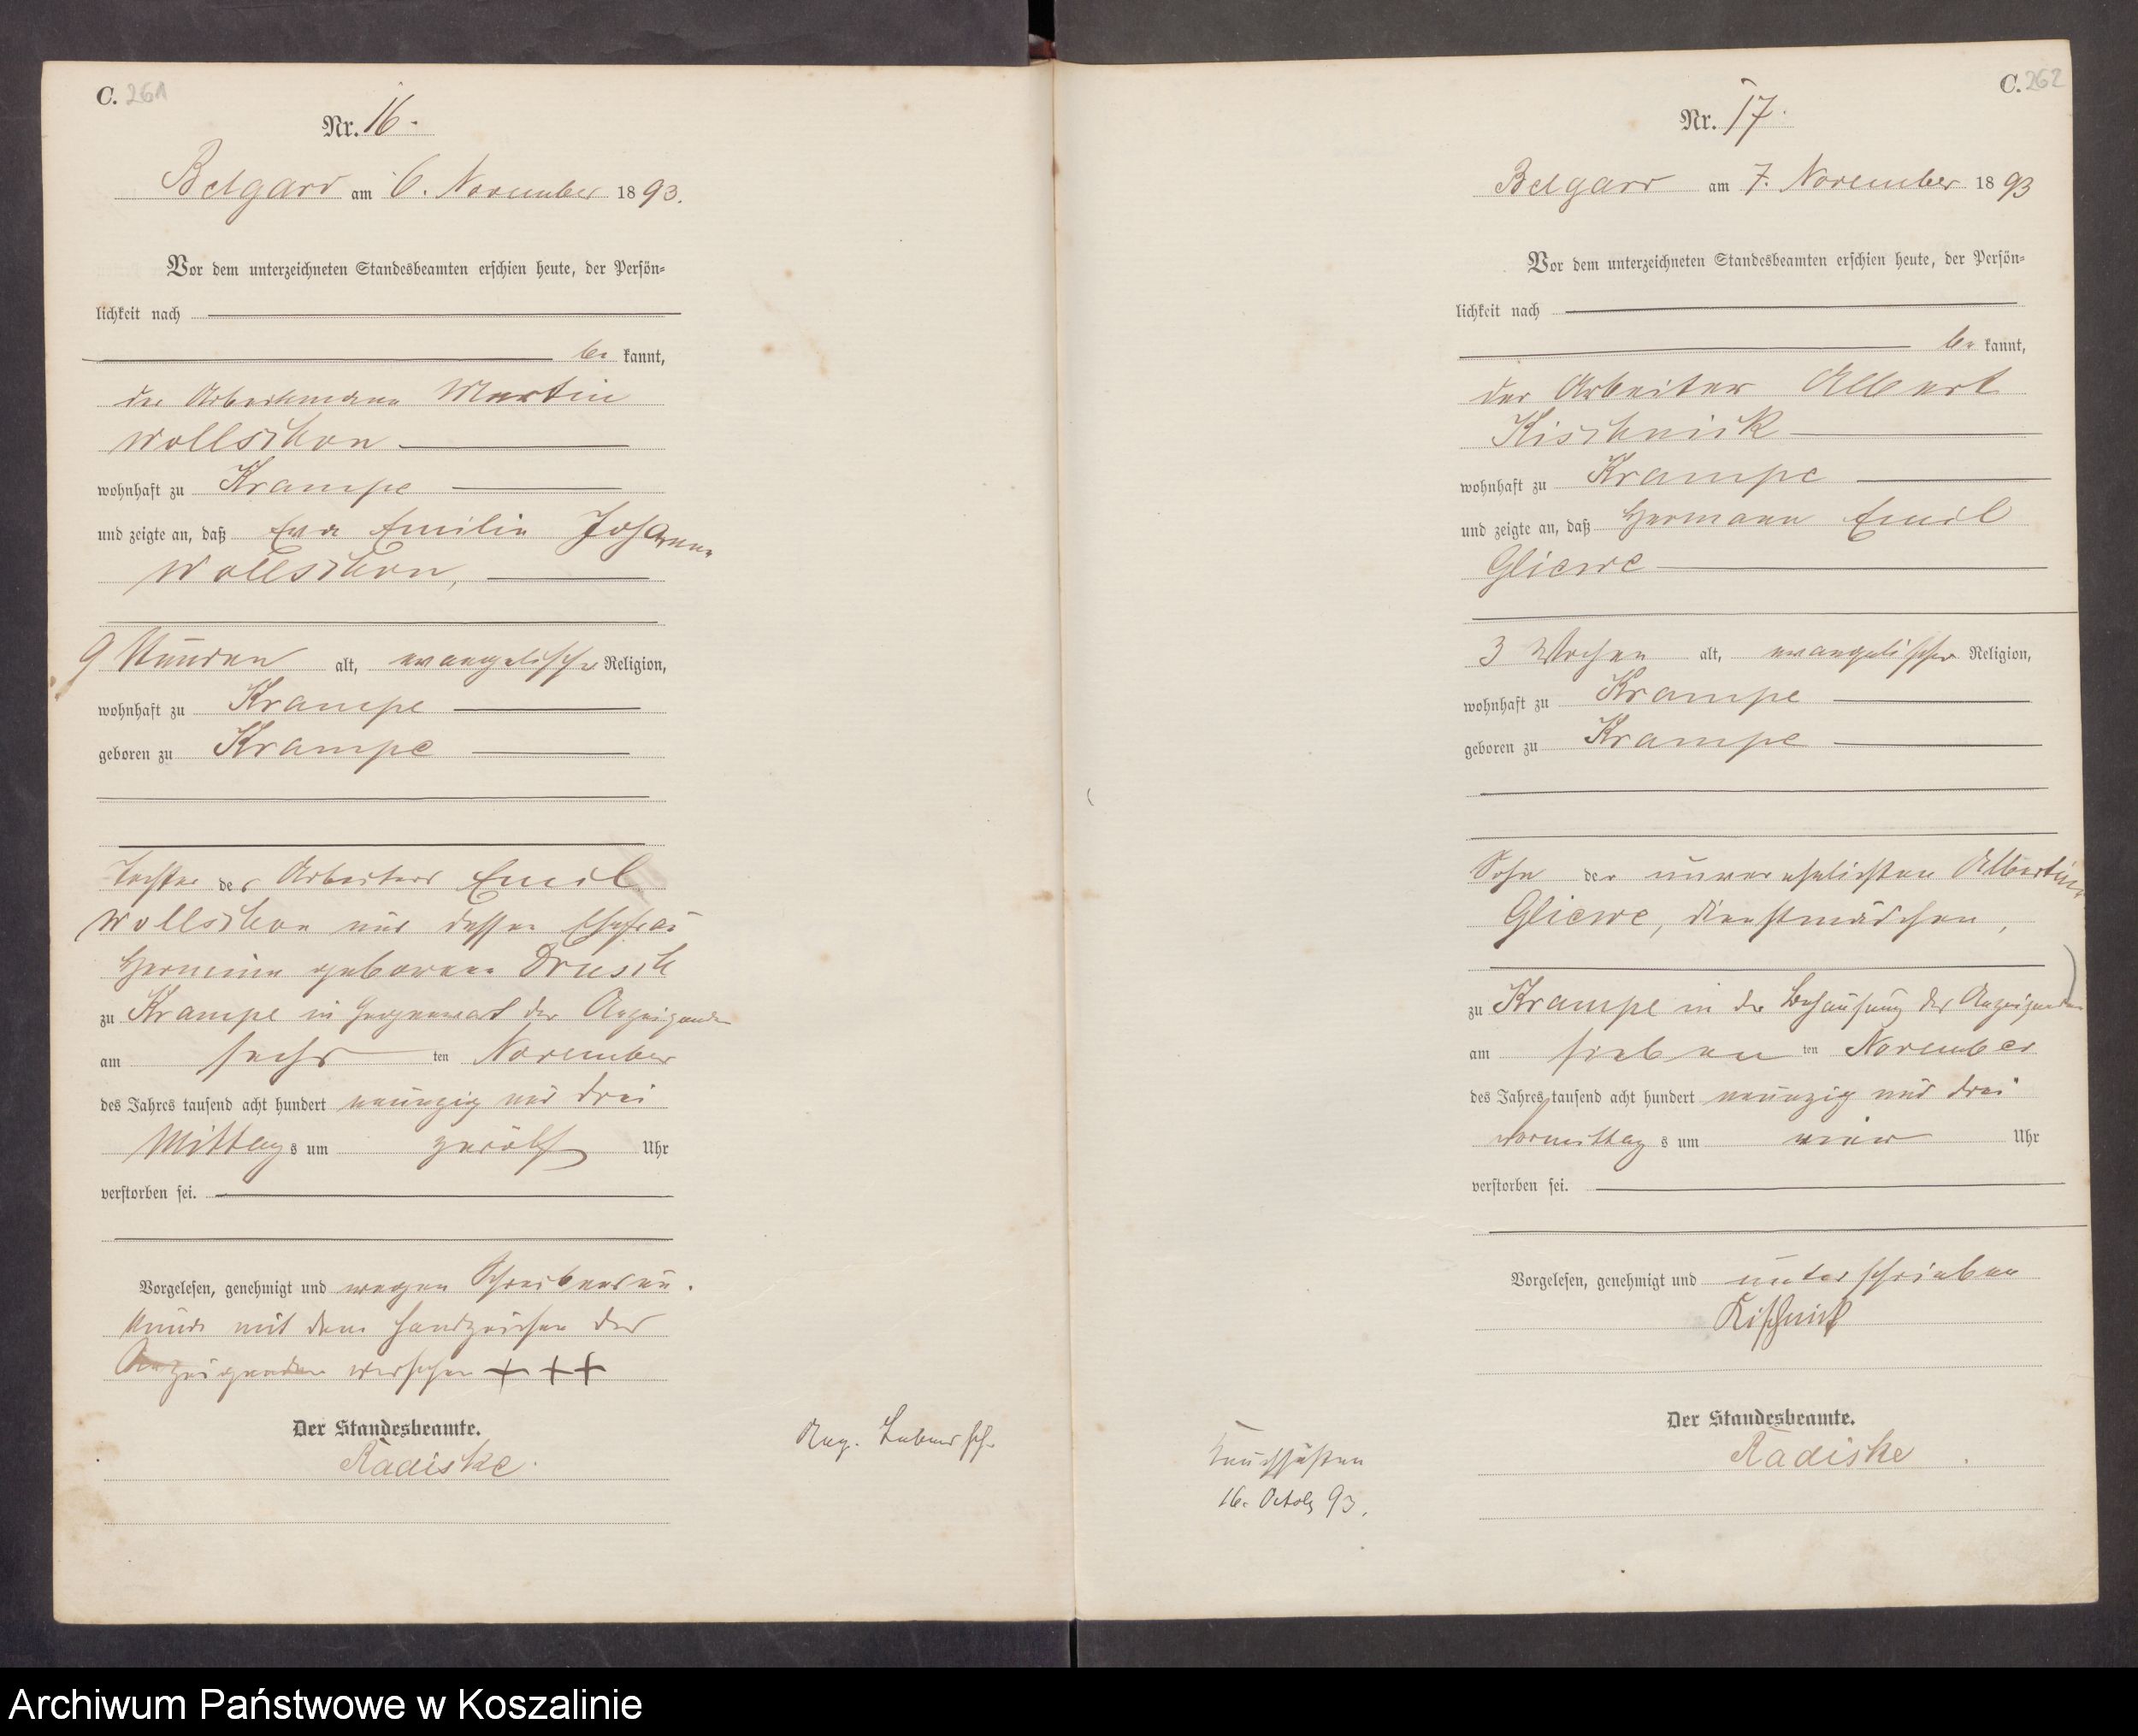 C. 261
Nr. 16.
Belgard am 6. November 1893.
Vor dem unterzeichneten Standesbeamten erschien heute, der Persön-
lichkeit nach
be kannt,
der Arbeitsmann Martin
Wollschon
wohnhaft zu Krampe
und zeigte an, daß Emilie Johanna
Wollschon,
9 Stunden alt, evangelischer Religion,
wohnhaft zu Krampe
geboren zu Krampe
Tochter des Arbeiters Emil
Wollschon und dessen Ehefrau
Hermine geborene Drusch
zu Krampe in Gegenwart des Anzeigenden
am sechs ten November
des Jahres tausend acht hundert neunzig und drei
Mittag s um zwölf Uhr
verstorben sei.
Vorgelesen, genehmigt und wegen Schreibensun-
kunde mit dem Handzeichen des
Anzeigenden versehen + + +
Der Standesbeamte.
Radiske.
C. 262
Nr. 17.
Belgard am 7. November 1893
Vor dem unterzeichneten Standesbeamten erschien heute, der Persön-
lichkeit nach
be kannt,
der Arbeiter Albert
Kischnick
wohnhaft zu Krampe
und zeigte an, daß Hermann Emil
Gliewe
3 Wochen alt, evangelischer Religion,
wohnhaft zu Krampe
geboren zu Krampe
Sohn der unverehelichten Albertine
Gliewe, Dienstmädchen,
zu Krampe in der Behausung des Anzeigenden
am sieben ten November
des Jahres tausend acht hundert neunzig und drei
Vormittag s um vier Uhr
verstorben sei.
Vorgelesen, genehmigt und unterschrieben
Kischnick
Der Standesbeamte.
Radiske
16. Octob 93.
Archiwum Państwowe w Koszalinie